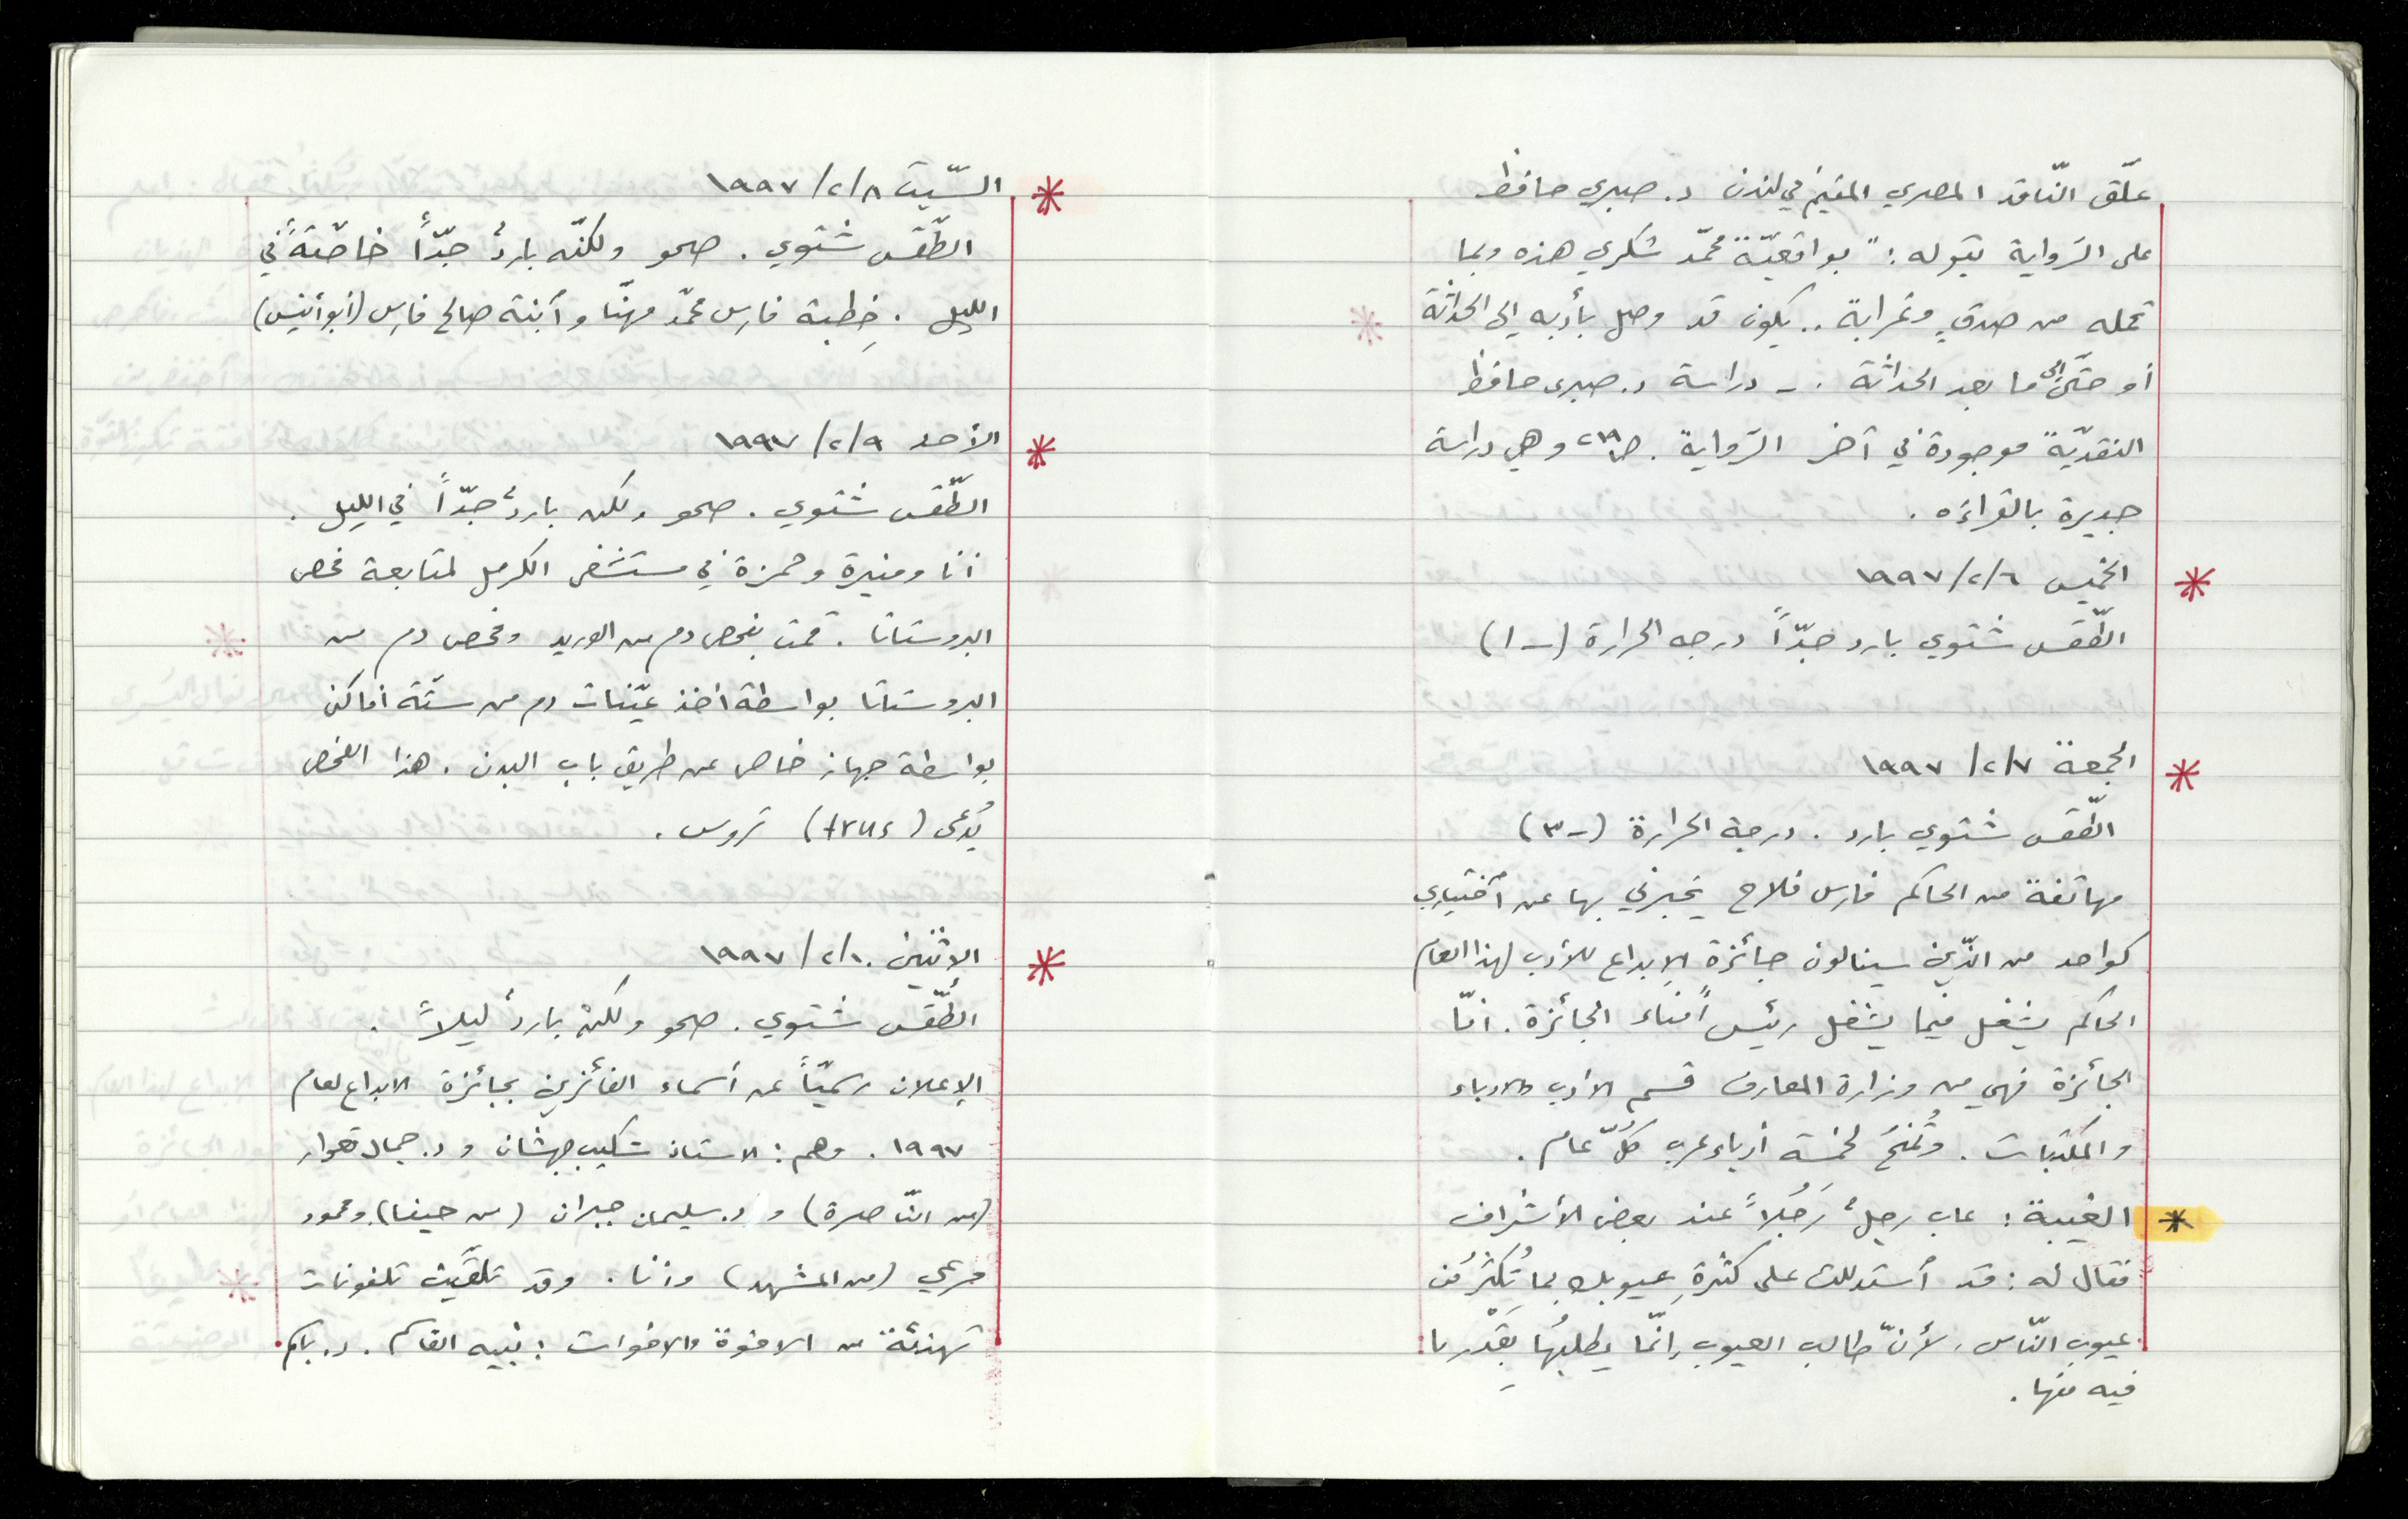 علّق النّاقد المصري المقيم في لندن د. صبري حافظ
على الرّواية بقوله: "بواقعيّة محمّد شكري هذه وبما
تحمله من صدقٍ وغرابة .. يكون قد وصل بأدبه إلى الحداثة
أو حتّى إلى ما بعد الحداثة. - دراسة د. صبري حافظ
النقديّة موجودة في آخر الرّواية. ص ٢١٩ وهي دراسة
جديرة بالقراءَه.
الخميس ٦/٢/١٩٩٧
الطّقس شتوي بارد جدّاً درجه الحرارة (-١)
الجمعة ٧/٢/١٩٩٧
الطّقس شتوي بارد. درجة الحرارة (-٣)
مهاتفة من الحاكم فارس فلاح يخبرني بها عن أختياري
كواحد من الذّين سينالون جائزة الإبداع للأدب لهذا العام
الحاكم يشغل فيما يشغل رئيس أمناء الجائزة. امّا
الجائزة فهي من وزارة المعارف قسم الأدب والأدباء
والمكتبات. وتُمنحُ لخمسة أدباء عرب كلّ عام.
الغيبة: عاب رجلٌ رَجُلاً عند بعض الأشراف
فقال له: قد أستدللت على كثرةِ عيوبك بما تُكثِرُ من
عيوب النّاس، لأنّ طالب العيوب إنّما يطلبُها بِقَدْر ما
فيه منها.
السّبت ٨/٢/١٩٩٧
الطّقس شتوي. صحو ولكنّه باردٌ جدّاً خاصّةً في
الليل. خِطبة فارس محمّد مهنّا وآبنة صالح فارس (أبو أنيس)
الأحد ٩/٢/١٩٩٧
الطّقس شتوي. صحو ولكن باردٌ جدّاً في الليل.
أنا ومنيرة وحمزة في مستشفى الكرمل لمتابعة فحص
البروستاتا. قمت بفحص دم من الوريد وفحص دم من
البروستاتا بواسطة أخذ عيّنات دم من ستّة أماكن
بواسطة جهاز خاص عن طريق باب البدن. هذا الفحص
يُدعى (trus) تروس.
الإثنين ١٠/٢/١٩٩٧
الطّقس شتوي. صحو ولكنّه باردٌ ليلاً.
الإعلان رسميّاً عن أسماء الفائزين بجائزة الابداع لعام
١٩٩٧. وهم: الاستاذ شكيب جهشان و د. جمال قعوار
(من النّاصرة) و د. سليمان جبران (من حيفا) ومحمود
مرعي (من المشهد) وأنا. وقد تلقّيت تلفونات
تهنئة من الاخوة والاخوات: نبيه القاسم. د. باسم